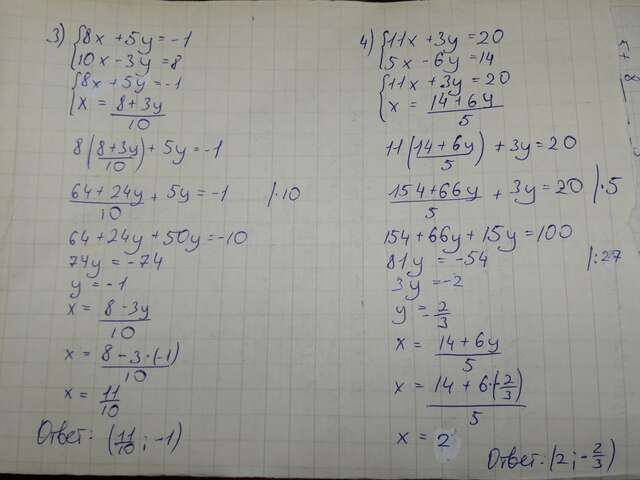 3) { 8x + 5y = -1
10x - 3y = 8
{ 8x + 5y = -1
x = (8 + 3y)/10
8((8 + 3y)/10) + 5y = -1
(64 + 24y)/10 + 5y = -1 |·10
64 + 24y + 50y = -10
74y = -74
y = -1
x = (8 - 3y)/10
x = (8 - 3·(-1))/10
x = 11/10
Ответ: (11/10; -1)
4) { 11x + 3y = 20
5x - 6y = 14
{ 11x + 3y = 20
x = (14 + 6y)/5
11((14 + 6y)/5) + 3y = 20
(154 + 66y)/5 + 3y = 20 |·5
154 + 66y + 15y = 100
81y = -54 |:27
3y = -2
y = -2/3
x = (14 + 6y)/5
x = (14 + 6·(-2/3))/5
x = 2
Ответ: (2; -2/3)